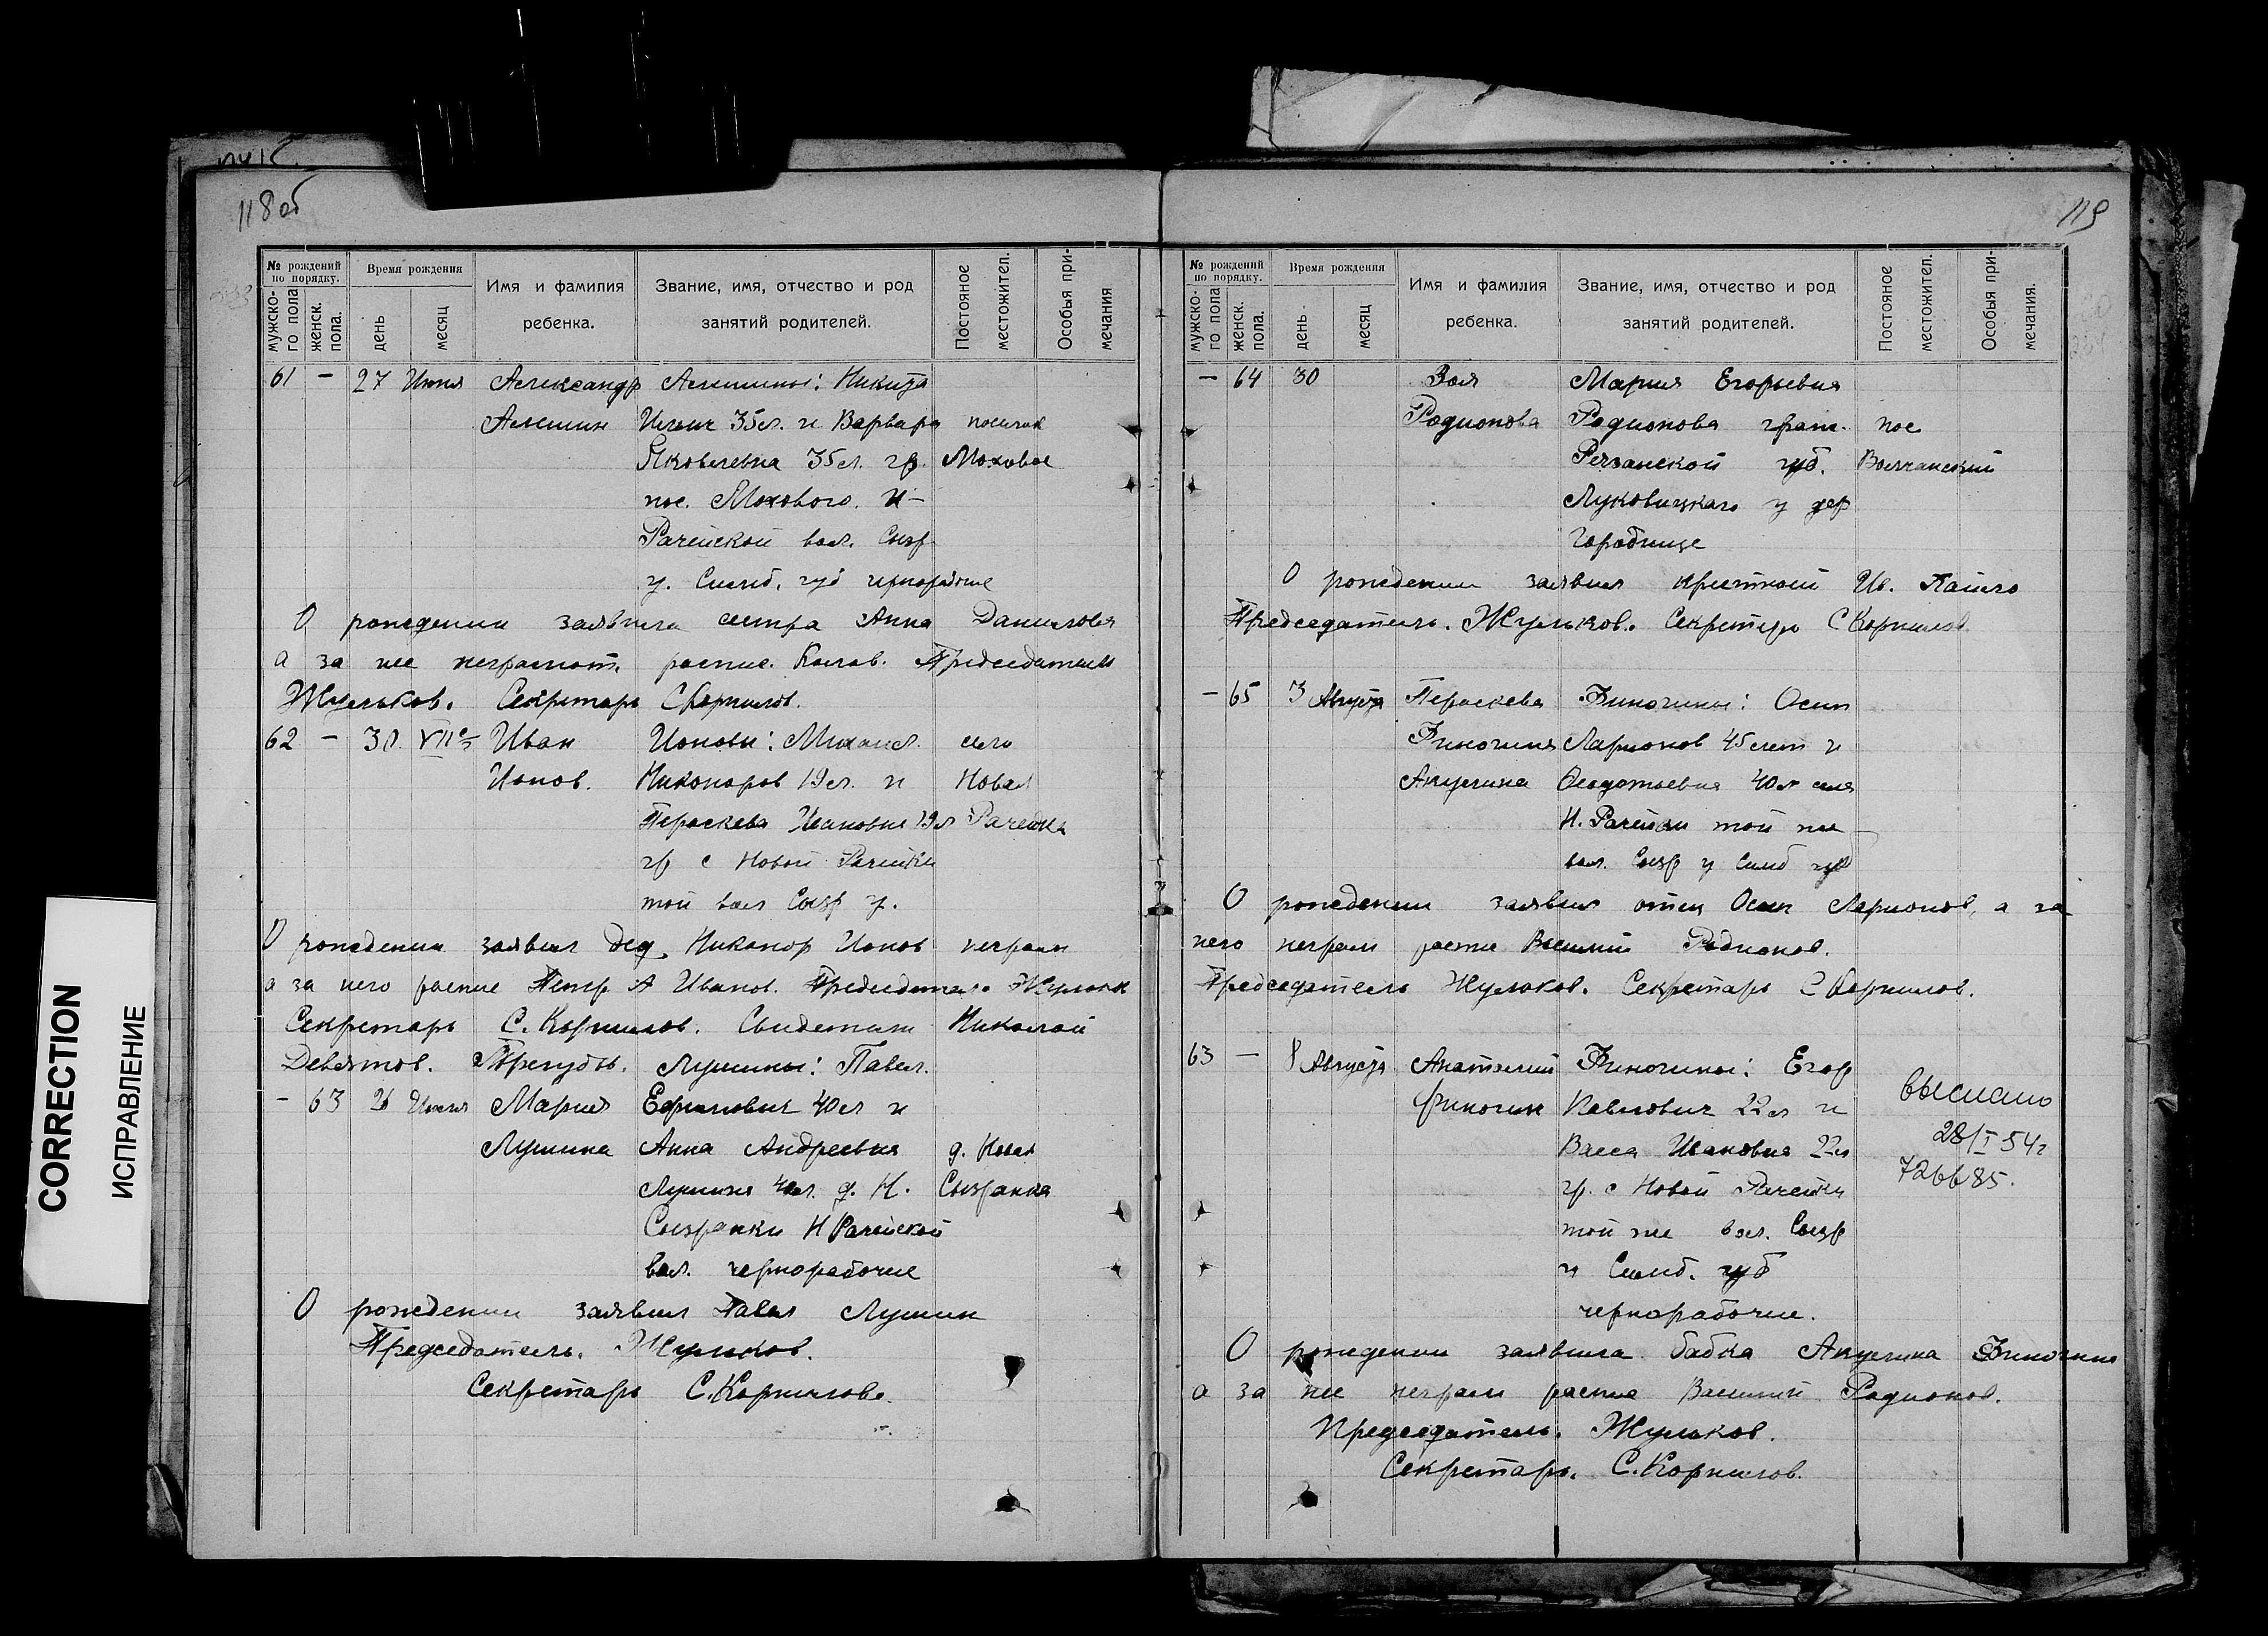 118об
№ рождений по порядку.
Время рождения
Имя и фамилия ребенка.
Звание, имя, отчество и род занятий родителей.
Постояное местожител.
Особыя примечания
мужского пола
женск. пола.
день
месяц
61 – 27 Июля Александр Алешины: Никита
Алешин 35 л. и Варвара поселок
Яковлевна 35 л. гр. Моховое
пос. Мохового. Н-
Рачейской вол. Сызр
у. Симб. губ чернорабочие
О рождении заявила сестра Анна Данилова
а за нее неграмот. распис. Председатель
Жульков. Секретарь С Корнилов.
62 – 30 VII Иван Ионовы: Михаил. село
Ионов. Никоноров 19 л. и Новая
Пераскева Ивановна 19 л Рачейка
гр с Новой Рачейки
той вол Сызр у.
О рождении заявил дед Никанор Ионов неграм
а за него распис Петр А Иванов. Председатель Жульков
Секретарь С. Корнилов. Свидетели Николай
Девятов. Лушины: Павел.
– 63 26 Июля Мария Ефимович 40 л и
Лушина Анна Андреевна д. Новая
Лушина 40 л. д. Н. Сызранка
Сызранки Н Рачейской
вол. чернорабочие
О рождении заявил Павел Лушин
Председатель. Жульков.
Секретарь С. Корнилов.
119
№ рождений по порядку.
Время рождения
Имя и фамилия ребенка.
Звание, имя, отчество и род занятий родителей.
Постояное местожител.
Особыя примечания.
мужского пола
женск. пола.
день
месяц
– 64 30 Зоя Мария Егорьевна
Родионова Родионова граж. пос
Рязанской губ. Волчанский
Луковицкаго у дер
Городище
О рождении заявил крестный Ив.
Председатель. Жульков. Секретарь С Корнилов
– 65 3 Августа Пераскева Финогины: Осип
Финогина Ларионов 45 лет и
Акулина Федотьевна 40 л села
Н. Рачейки той же
вол. Сызр у Симб губ
О рождении заявил отец Осип Ларионов, а за
него неграм распис Василий Родионов.
Председатель Жульков. Секретарь С Корнилов.
63 – 8 Августа Анатолий Финогины: Егор
Финогин Павлович 22 л и
Васса Ивановна 22 л
гр. с Новой Рачейки
той же вол. Сызр
и Симб. губ
чернорабочие.
выслано
28/I 54г
726685.
О рождении заявила бабка Акулина Финогина
а за нее неграм распис Василий Родионов.
Председатель. Жульков.
Секретарь. С. Корнилов.
CORRECTION
ИСПРАВЛЕНИЕ